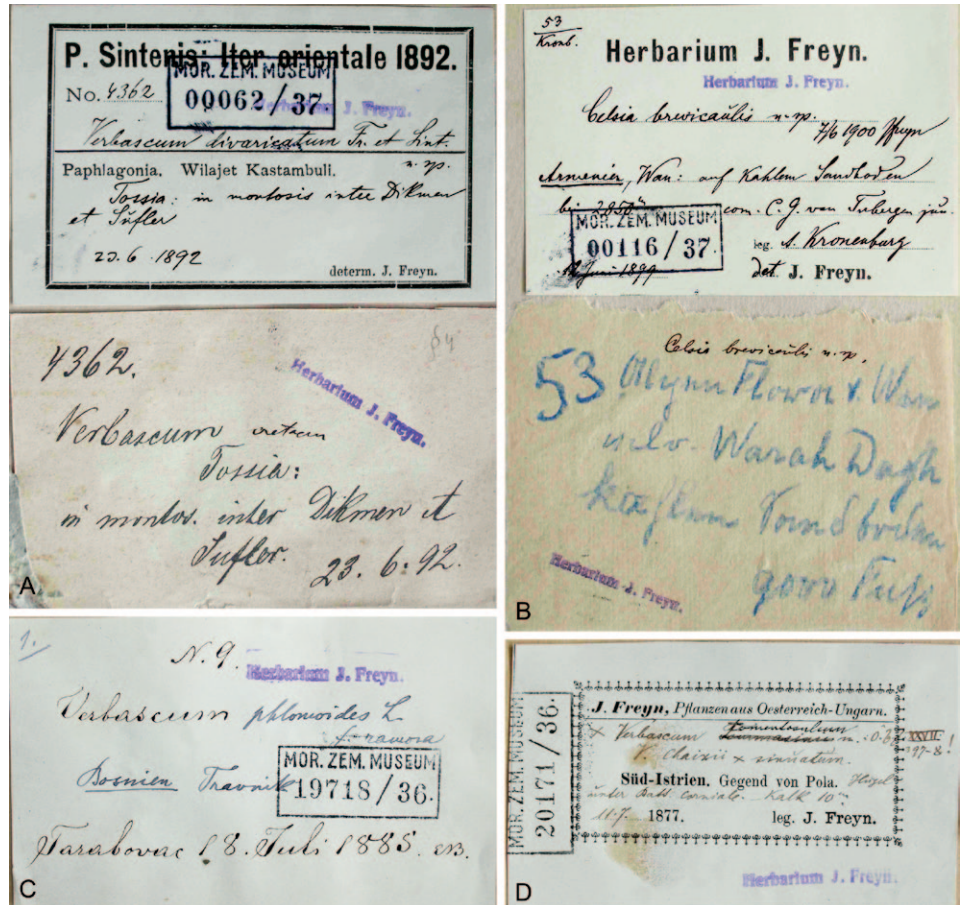 P. Sintenis: Iter orientale 1892.
MOR. ZEM. MUSEUM
No. 4362
00062/37
Herbarium J. Freyn.
Verbascum divaricatum Fr. et Sint.
n. sp.
Paphlagonia. Wilajet Kastambuli.
Tossia: in montosis inter Dikmen
et Sufler
23. 6. 1892
determ. J. Freyn.
4362.
Herbarium J. Freyn.
Verbascum
Tossia:
in montos. inter Dikmen et
Sufler.
23. 6. 92.
A
53
Kronb.
Herbarium J. Freyn.
Herbarium J. Freyn.
Celsia brevicaulis n. sp.
7/6 1900 Freyn
Armenien, Wan: auf kahlem Sandboden
com. C. G. van Tubergen jun.
MOR. ZEM. MUSEUM
00116/37.
leg. A. Kronenburg
Juni 1899
det. J. Freyn.
Celsia brevicaulis n. sp.
53 Wan
Warak Dagh
kahlem Sandboden
9000 Fuss
Herbarium J. Freyn.
B
1.
N. 9.
Herbarium J. Freyn.
Verbascum phlomoides L
f. ramosa
MOR. ZEM. MUSEUM
Bosnien Travnik
19718/36.
Tarabovac 18. Juli 1885.
C
MOR. ZEM. MUSEUM
20171/36.
J. Freyn, Pflanzen aus Oesterreich-Ungarn.
x Verbascum
XXVII. !
297-8
V. Chaixii x sinuatum.
Süd-Istrien. Gegend von Pola. Hügel
unter Kalk 10
11/7. 1877.
leg. J. Freyn.
Herbarium J. Freyn.
D